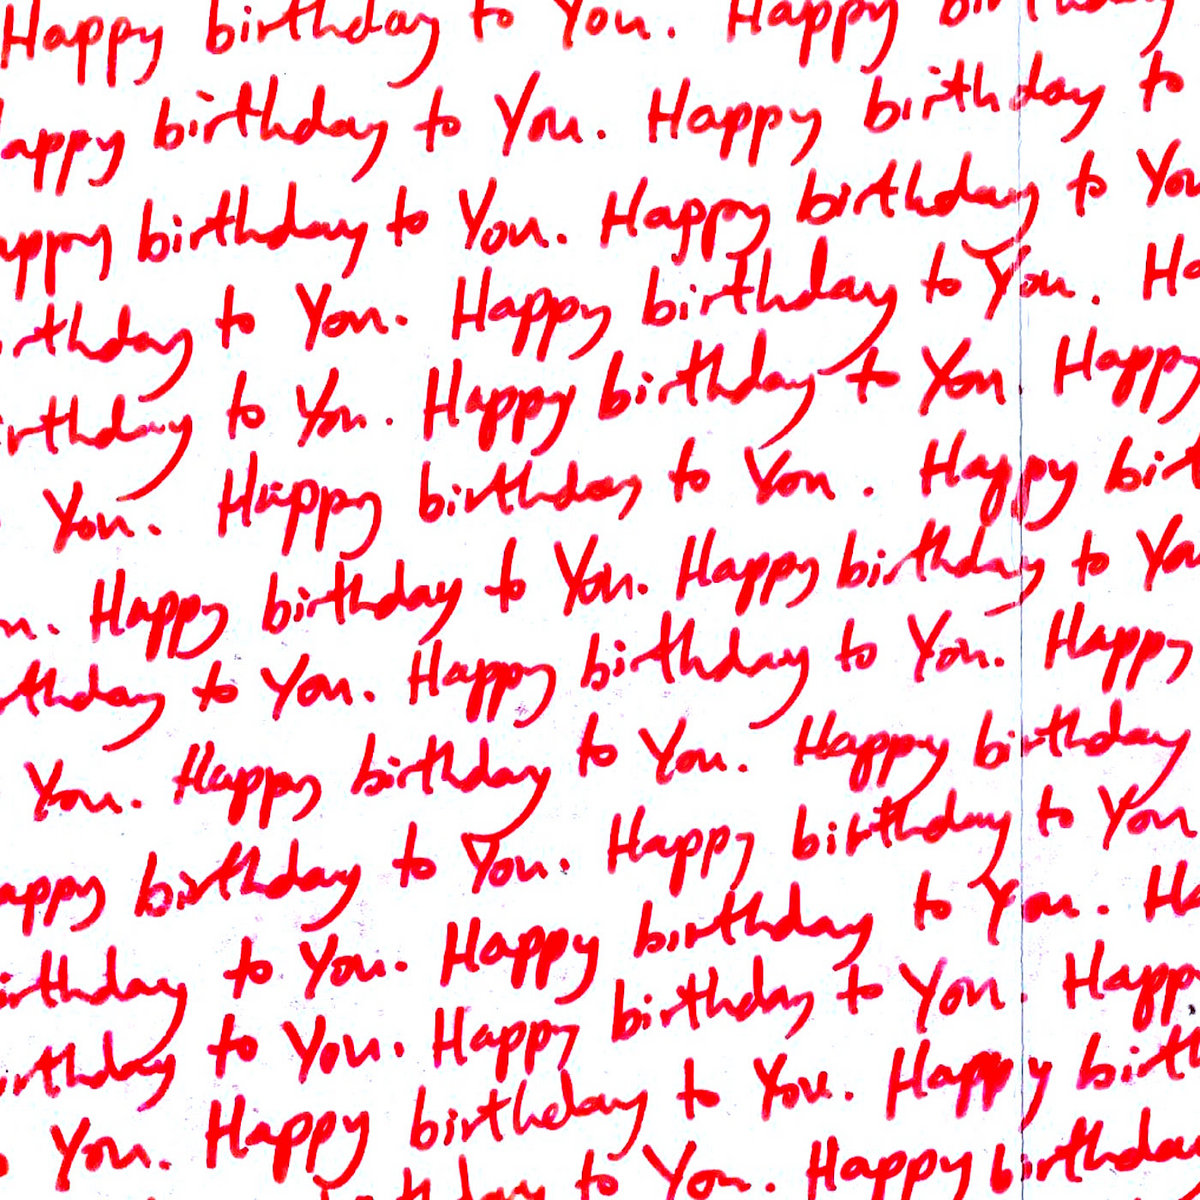 Happy birthday to You. Happy birthday
appy birthday to You. Happy birthday to
appy birthday to You. Happy birthday to You
rthday to You. Happy birthday to You. Ha
irthday to You. Happy birthday to You Happy
You. Happy birthday to You. Happy birt
n. Happy birthday to You. Happy birthday to You
rthday to You. Happy birthday to You. Happy
You. Happy birthday to You. Happy birthday
appy birthday to You. Happy birthday to You
birthday to You. Happy birthday to You. Ha
birthday to You. Happy birthday to You. Happy
You. Happy birtheday to You. Happy birth
birthday to You. Happy birthday